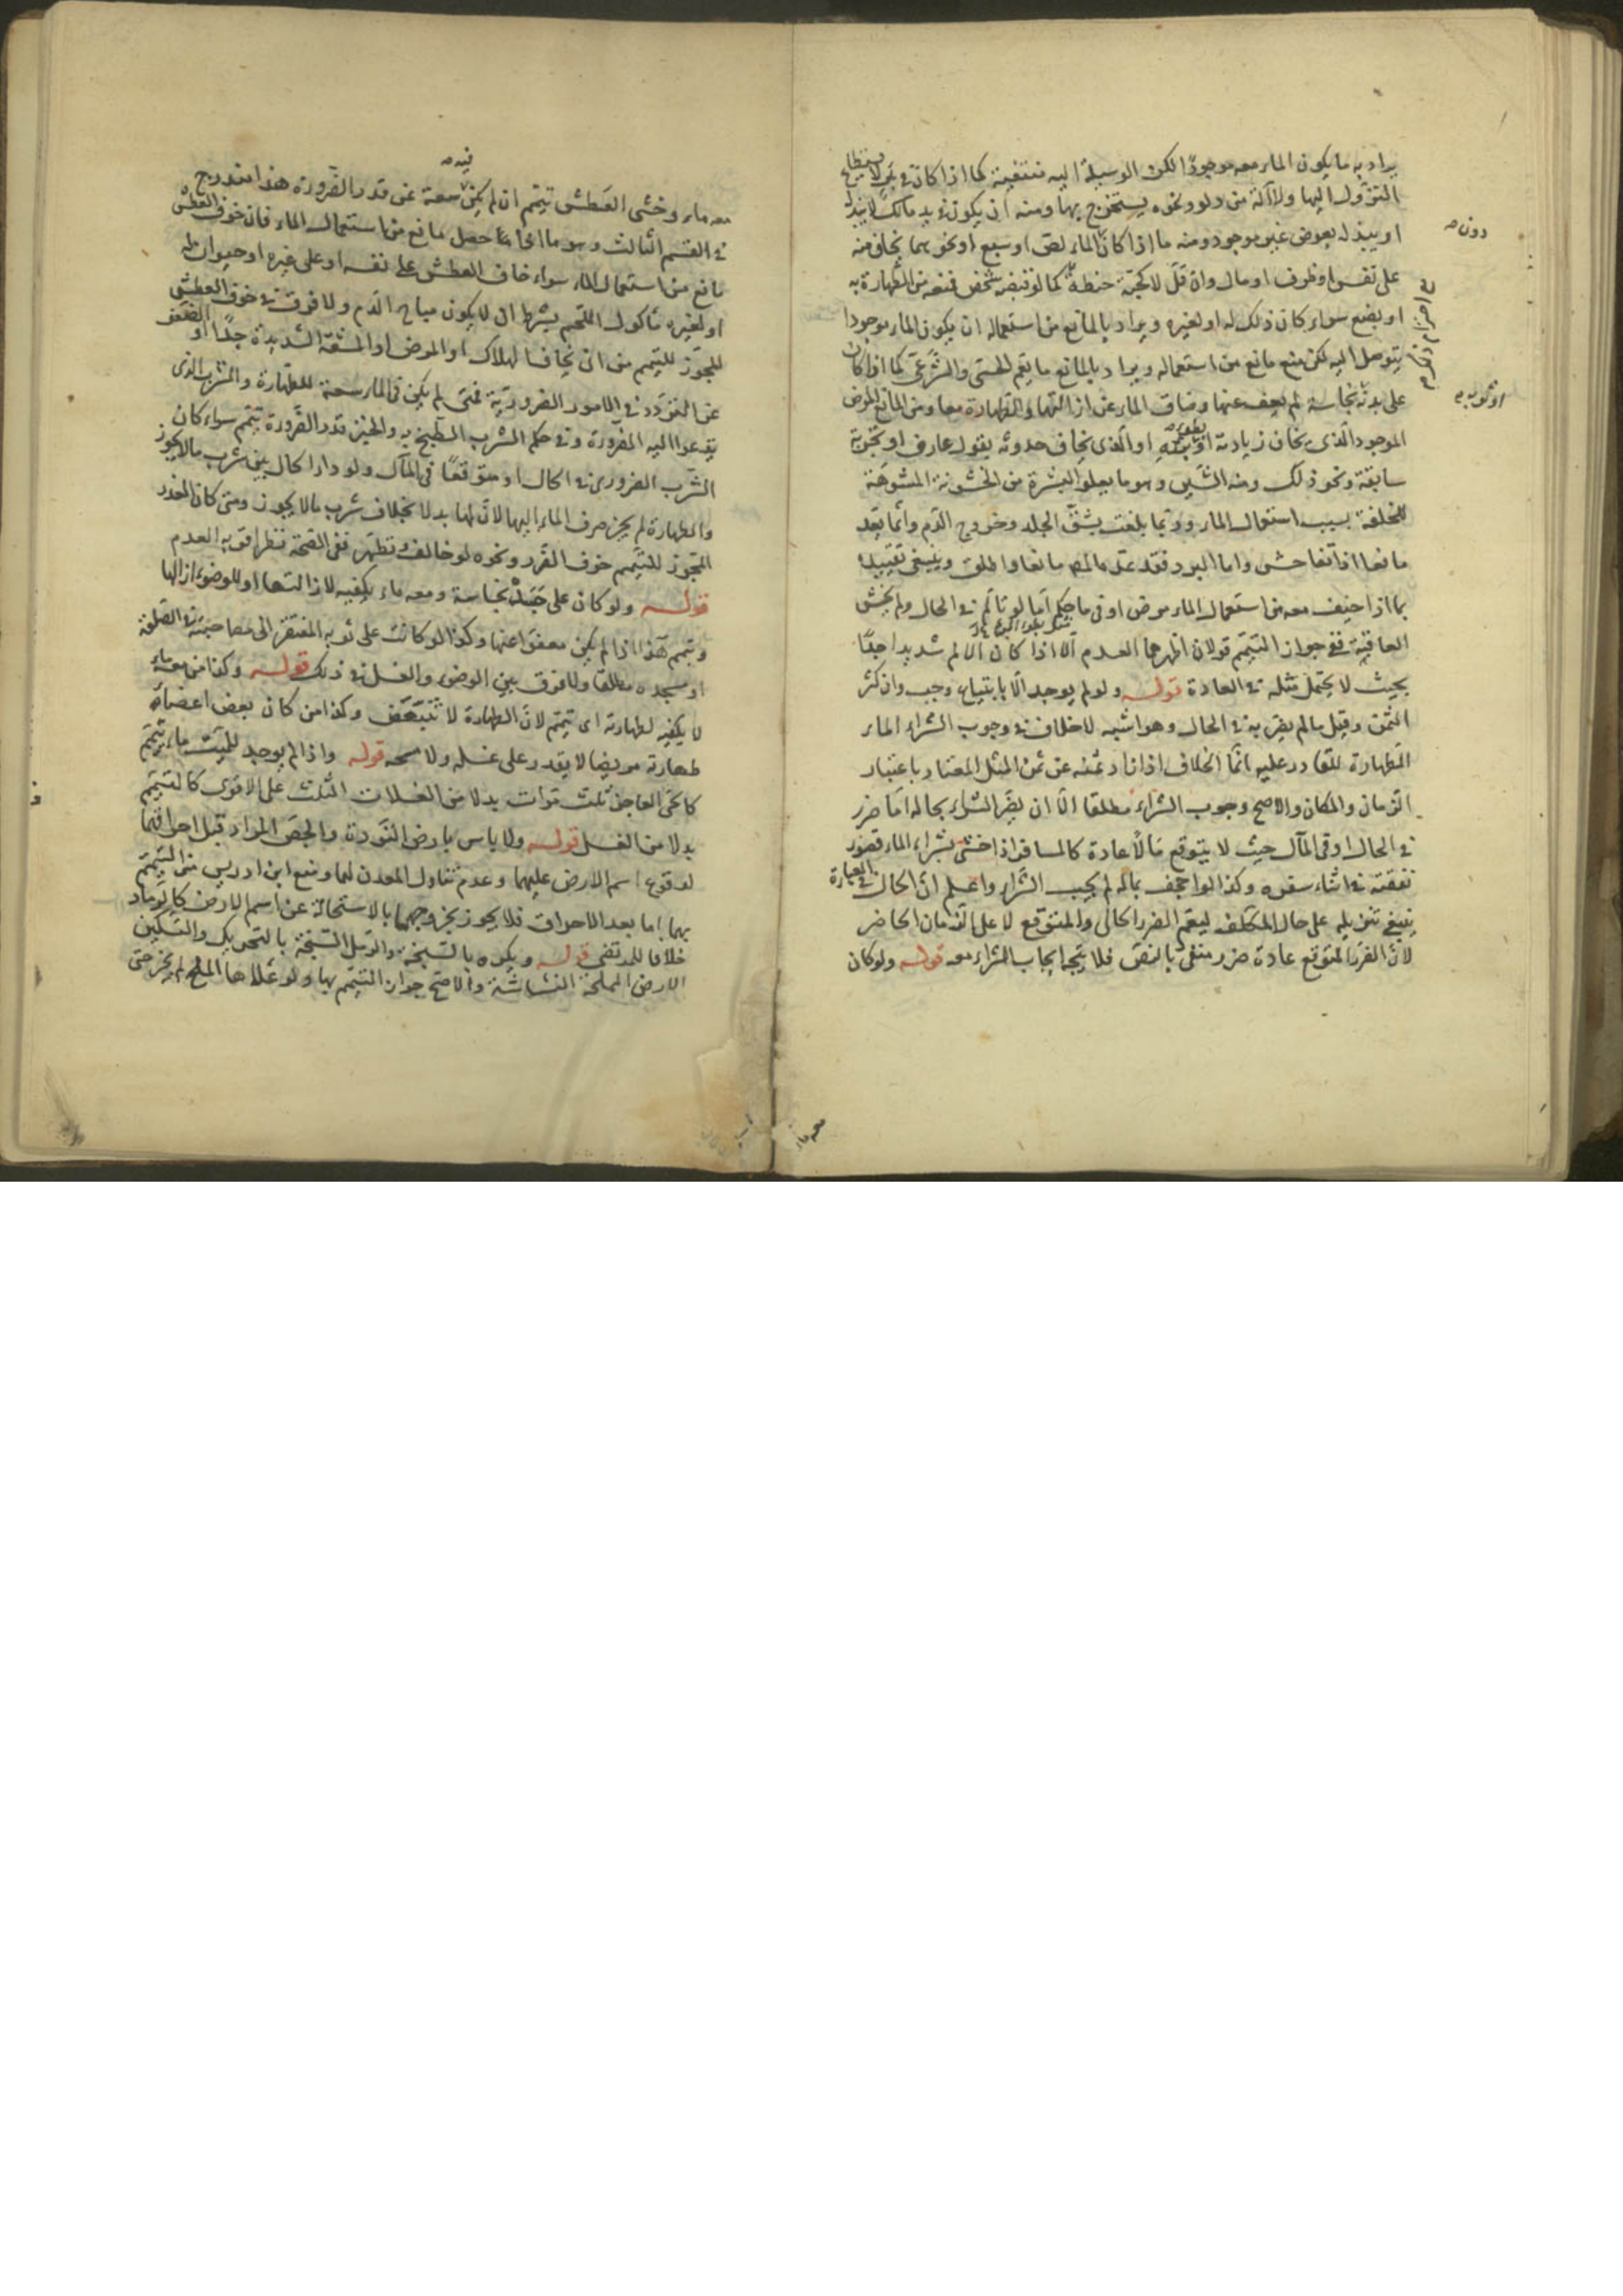 يراد به ما يكون الماء معه موجودا لكن الوسيلة اليه منتفية كما اذا كان في بئر لا يستطيع
النزول اليها ولا آلة من دلو ونحوه يستخرج بها ومنه ان يكون في يد مالك لا يبذله
او يبذله بعوض غير موجود ومنه ما اذا كان الماء لص او سبع او نحوهما يخاف منه
على نفس او ظرف او مال وان قل لا كحبة حنطة كما لو قبضه شخص فمنعه من الطهارة به
او بضع سواء كان ذلك له او لغيره ويراد بالمانع من استعماله ان يكون الماء موجودا
يتوصل اليه لكن منع مانع من استعماله ويراد بالمانع ما يعم الحسي والشرعي كما اذا كان
على بدنه نجاسة لم يعف عنها وضاق الماء عن ازالتها والطهارة معا ومن المانع المرض
الموجود الذي يخاف زيادته او او الذي يخاف حدوثه بقول عارف او تجربة
سابقة ونحو ذلك ومنه الشين وهو ما يعلو البشرة من الخشونة المشوهة
للخلقة بسبب استعمال الماء وربما بلغت بشق الجلد وخروج الدم وانما يعد
مانعا اذا تفاحش واما البرد فقد عد مانعا واطلق وينبغي تقييده
بما اذا خيف معه من استعمال الماء مرض او في ما حكم اما لو تالم في الحال ولم يخش
العاقبة ففي جواز التيمم قولان اظهرهما العدم الا اذا كان الالم شديدا جدا
بحيث لا يحتمل مثله في العادة قوله ولو لم يوجد الا بابتياع وجب وان كثر
الثمن وقيل ما لم يضر به في الحال وهو اشبه لا خلاف في وجوب الشراء الماء
الطهارة للقادر عليه انما الخلاف اذا زاد ثمنه عن ثمن المثل المعتاد باعتبار
الزمان والمكان والاصح وجوب الشراء مطلقا الا ان يضر الشراء بحاله اما ضرر
في الحال او في المآل حيث لا يتوقع مالا عادة كالمسافر اذا خشي بشراء الماء قصور
نفقته في اثناء سفره وكذا لو اجحف بماله لم يجب الشراء واعلم ان الحال في العبارة
ينبغي تنزيله على حال المكلف ليعم الضرر الحالي والمتوقع لا على الزمان الحاضر
لان الضرر المتوقع عادة ضرر منفي بالنص فلا يتجه ايجاب الشراء معه قوله ولو كان
دون
او ثوبه
فيه
معه ماء وخشي العطش تيمم ان لم يكن سعة عن قدر الضرورة هذا اندرج
في القسم الثالث وهو ما اذا حصل مانع من استعمال الماء فان خوف العطش
مانع من استعمال الماء سواء خاف العطش على نفسه او على غيره او حيوان له
او لغيره مأكول اللحم بشرط ان لا يكون مباح الدم ولا فرق في خوف العطش
المجوز للتيمم من ان يخاف الهلاك او المرض او المشقة الشديدة جدا او الضعف
عن التردد في الامور الضرورية فمتى لم يكن في الماء سعة للطهارة والشرب الذي
يدعوا اليه الضرورة وفي حكم الشرب الطبخ به والخبز قدر الضرورة تيمم سواء كان
الشرب الضروري في الحال او متوقعا في المآل ولو دار الحال بين شرب ما لا يجوز
والطهارة لم يجز صرف الماء اليها لان لها بدلا بخلاف شرب ما لا يجوز ومتى كان العذر
المجوز للتيمم خوف الضرر ونحوه لو خالف وتطهر ففي الصحة نظر اقربه العدم
قوله ولو كان على جسده نجاسة ومعه ماء يكفيه لازالتها او للوضوء ازالها
وتيمم هذا اذا لم يكن معفوا عنها وكذا لو كانت على ثوبه المفتقر الى مصاحبته في الصلوة
او مسجده مطلقا ولا فرق بين الوضوء والغسل في ذلك قوله وكذا من معه ماء
لا يكفيه لطهارته اي تيمم لان الطهارة لا تتبعض وكذا من كان بعض اعضاء
طهارته مريضا لا يقدر على غسله ولا مسحه قوله واذا لم يوجد للميت ماء تيمم
كالحي العاجز ثلث مرات بدلا من الغسلات الثلث على الاقوى كالتيمم
بدلا من الغسل قوله ولا باس بارض النورة والجص المراد قبل احراقهما
لوقوع اسم الارض عليهما وعدم تناول المعدن لهما ومنع ابن ادريس من التيمم
بهما اما بعد الاحراق فلا يجوز بخروجهما بالاستحالة عن اسم الارض كالرماد
خلافا للمرتضى قوله ويكره بالسبخة والرمل السبخة بالتحريك والتسكين
الارض المملحة النشاشة والاصح جواز التيمم بها ولو علاها الملح لم يجز حتى